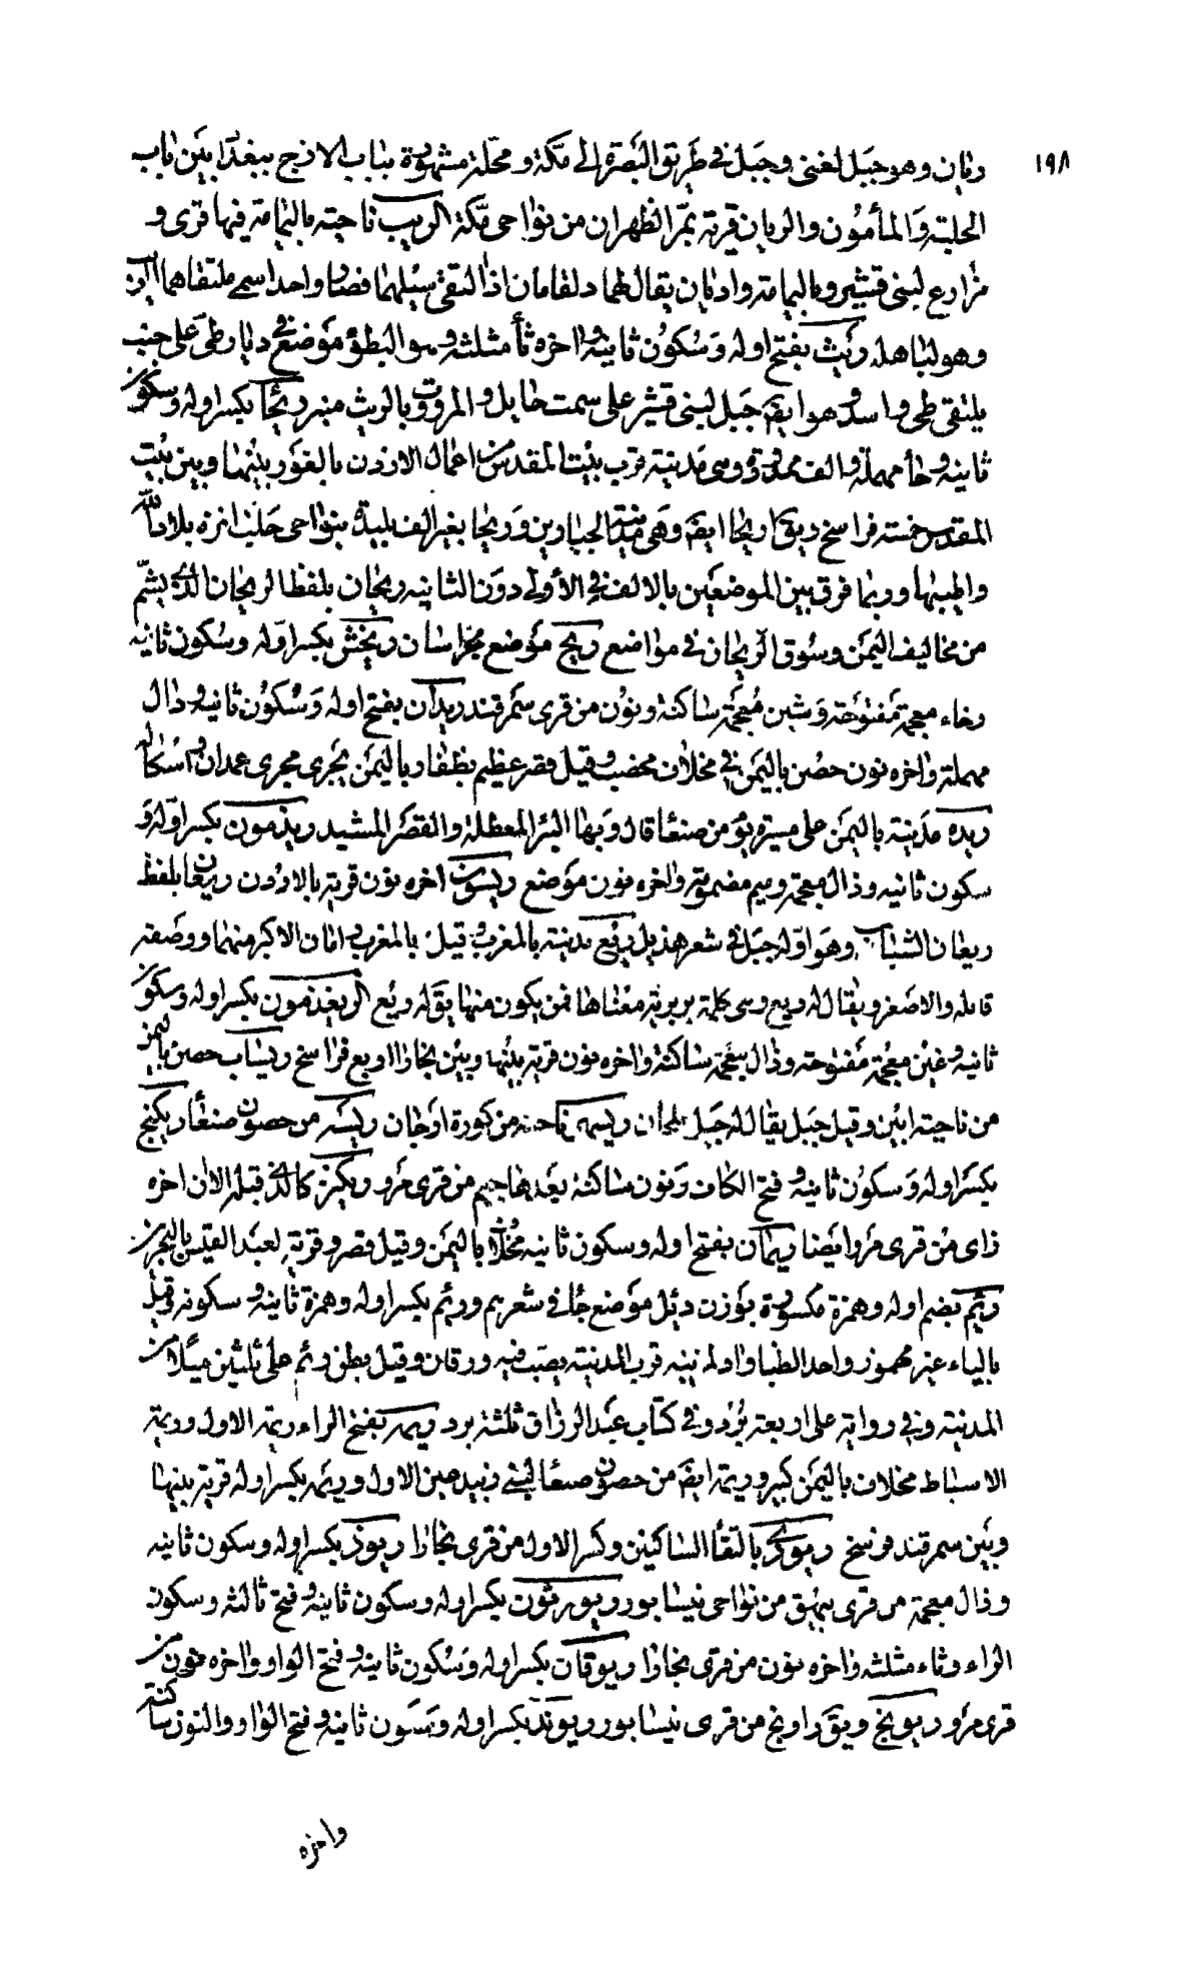 ١٩٨
ديان وهو جبل لغنى وجبل في طريق البصرة إلى مكة ومحلة مشهورة بباب الازج ببغداد بين باب
الحلبة والمأمون والريان قرية بمر الظهران من نواحى مكة الريب ناحية باليمامة فيها قرى و
مزارع لبنى قشير وباليمامة واديان يقال لهما دلقامان اذا التقى سيلهما فصارا واحدا سمى ملتقاهما الريب
وهو لباهلة ريث بفتح اوله وسكون ثانيه واخره ثأ مثلثة وهو البطؤ موضع في ديار طى على جنب
يلتقى طى واسد وهو ايضا جبل لبنى قشير على سمت حايل والمروت بالريث منبر ريحا بكسر اوله وسكون
ثانيه وحأ مهملة والف ممدودة وهى مدينة قرب بيت المقدس من اعمال الاردن بالغور بينها وبين بيت
المقدس خمسة فراسخ ويق اريحا ايضا وهى مدينة الجبارين وريحا بغير الف بليدة بنواحى حلب انزه بلاد الله
واطيبها وربما فرق بين الموضعين بالالف في الأولى دون الثانيه ريحان بلفظ الريحان الذى يشم
من مخاليف اليمن وسوق الريحان في مواضع ريخ موضع بخراسان ريخشن بكسر اوله وسكون ثانيه
وخاء معجمة مفتوحة وشين معجمة ساكنة ونون من قرى سمرقند ريدان بفتح اوله وسكون ثانيه ودال
مهملة واخره نون حصن باليمن في مخلاف يحصب وقيل قصر عظيم بظفار باليمن يجرى مجرى غمدان واشكاله
ريده مدينة باليمن على مسيرة يوم من صنعا قال وبها البئر المعطلة والقصر المشيد ريذمون بكسر اوله و
سكون ثانيه وذال معجمة وميم مضمومة واخره نون موضع ريسون اخره نون قرية بالاردن ريعان بلفظ
ريعان الشباب وهو اوله جبل في شعر هذيل ريغ مدينة بالمغرب وقيل بالمغرب امان الاكبر منهما ووصفه
قابله والاصغر ويقال له ريغ وهى كلمة بربرية معناها فمن يكون منها يق له ريغى الريغذمون بكسر اوله وسكون
ثانيه وغين معجمة مفتوحة وذال معجمة ساكنة واخره نون قرية بينها وبين بخارا اربع فراسخ ريشاب حصن باليمن
من ناحية ابين وقيل جبل يقال له جبل ملحان ريشهر ناحية من كورة ارجان ريشه من حصون صنعأ ريكنج
بكسر اوله وسكون ثانيه وفتح الكاف ونون ساكنة بعدها جيم من قرى مرو ريكنز كالذى قبله الا ان اخره
زاى من قرى مرو ايضا ريمان بفتح اوله وسكون ثانيه مخلاف باليمن وقيل قصر وقرية لعبد القيس بالبحرين
رئيم بضم اوله وهمزة مكسورة بوزن دئل موضع جأ في شعرهم ورئم بكسر اوله وهمزة ثانيه وسكونه وقيل
بالياء غير مهموز واحد الظبا واد لمزينه قرب المدينة يصب فيه ورقان وقيل بطن رئم على ثلثين ميلا من
المدينة وفي رواية على اربعة برد وفي كتاب عبد الرزاق ثلثة برد ريمه بفتح الراء ريمة الاول وريمة
الاسباط مخلاف باليمن كبير وريمة ايضا من حصون صنعا لبنى زبيد حين الاول وريمه بكسر اوله قرية بينها
وبين سمرقند فرسخ ريودى بالتقأ الساكنين وكسر الاول من قرى بخارا ريوذ بكسر اوله وسكون ثانيه
وذال معجمة من قرى بيهق من نواحى نيسابور ريورثون بكسر اوله وسكون ثانيه وفتح ثالثه وسكون
الراء وثاء مثلثه واخره نون من قرى بخارا ريوقان بكسر اوله وسكون ثانيه وفتح الواو واخره نون من
قرى مرو ريونج ويق راونج من قرى نيسابور ريوند بكسر اوله وسكون ثانيه وفتح الواو والنون ساكنة
واخره